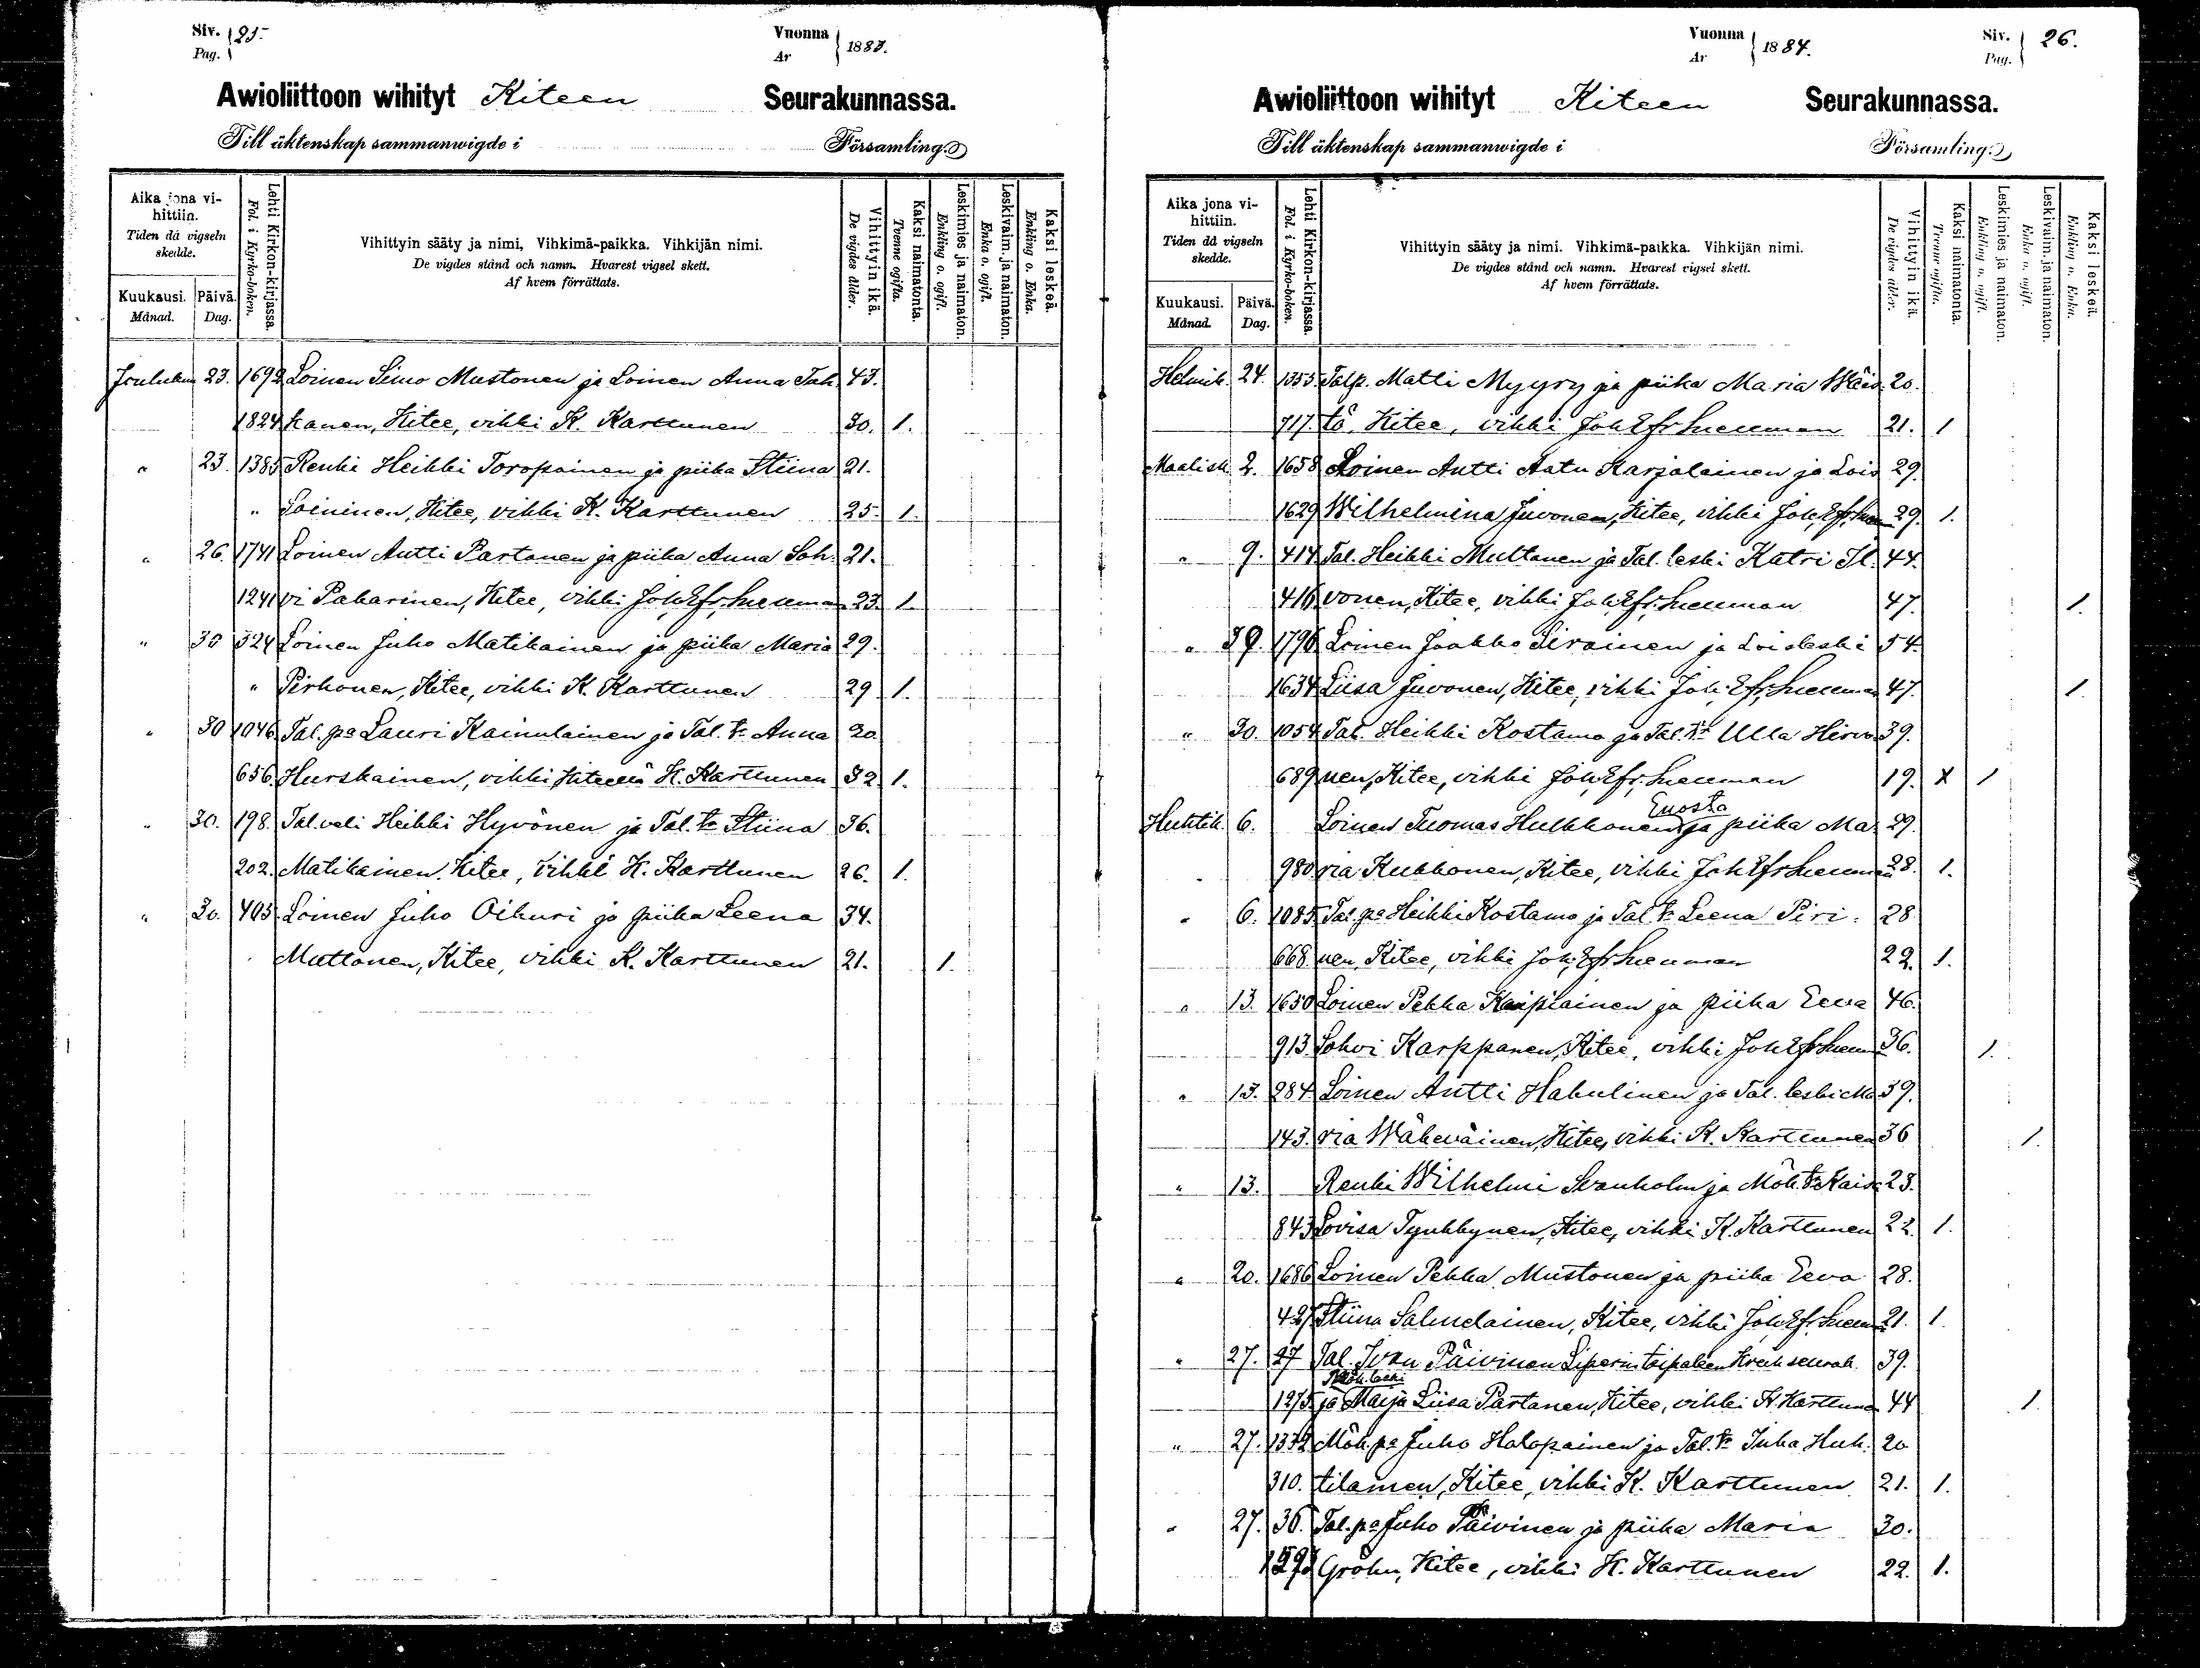 Siv. Pag. 25.
Vuonna År 1883.
Awioliittoon wihityt Kiteen Seurakunnassa.
Till äktenskap sammanwigde i Församling.
Aika jona vihittiin. Tiden då vigseln skedde.
Kuukausi. Månad.
Päivä. Dag.
Lehti Kirkon-kirjassa. Fol. i Kyrko-boken.
Vihittyin sääty ja nimi, Vihkimä-paikka. Vihkijän nimi.
De vigdes stånd och namn. Hvarest vigsel skett.
Af hvem förrättats.
Vihittyin ikä. De vigdes ålder.
Kaksi naimatonta. Tvenne ogifta.
Leskimies ja naimaton. Enkling o. ogift.
Leskivaim. ja naimaton. Enka o. ogift.
Kaksi leskeä. Enkling o. Enka.
Jouluk. 23. 1692 Loinen Simo Mustonen ja Loinen Anna Tah 43.
1824 kanen, Kitee, vihki K. Karttunen 30. 1.
" 23. 1385 Renki Heikki Toropainen ja piika Stiina 21.
" Soininen, Kitee, vihki K. Karttunen 25. 1.
" 26. 1741 Loinen Antti Partanen ja piika Anna Soh- 21.
1241 vi Pakarinen, Kitee, vihki Joh. Efr. Sneuman 23. 1.
" 30 324 Loinen Juho Matikainen ja piika Maria 29.
" Pirhonen, Kitee, vihki K. Karttunen 29 1.
" 30 1046. Tal. pa Lauri Kainulainen ja Tal. tr Anna 20.
656. Hurskainen, vihki Kiteellä K. Karttunen 32. 1.
" 30. 198. Tal. veli Heikki Hyvönen ja Tal. tr Stiina 36.
202. Matikainen, Kitee, vihki K. Karttunen 26. 1.
" 30. 405. Loinen Juho Oikuri ja piika Leena 34.
Muttonen, Kitee, vihki K. Karttunen 21. 1.
Vuonna År 1884.
Siv. Pag. 26.
Awioliittoon wihityt Kiteen Seurakunnassa.
Till äktenskap sammanwigde i Församling.
Aika jona vihittiin. Tiden då vigseln skedde.
Kuukausi. Månad.
Päivä. Dag.
Lehti Kirkon-kirjassa. Fol. i Kyrko-boken.
Vihittyin sääty ja nimi. Vihkimä-paikka. Vihkijän nimi.
De vigdes stånd och namn. Hvarest vigsel skett.
Af hvem förrättats.
Vihittyin ikä. De vigdes ålder.
Kaksi naimatonta. Tvenne ogifta.
Leskimies ja naimaton. Enkling o. ogift.
Leskivaim. ja naimaton. Enka o. ogift.
Kaksi leskeä. Enkling o. Enka.
Helmik. 24. 1355. Talp. Matti Myyry ja piika Maria Wäis 20.
717. tö, Kitee, vihki Joh Efr Sneuman 21. 1
Maalisk. 2. 1658 Loinen Antti Aatu Karjalainen ja Lois 29.
1629 Wilhelmina Juvonen, Kitee, vihki Joh. Efr. 29. 1.
" 9. 414 Tal. Heikki Multanen ja Tal. leski Katri Il. 44.
416 vonen, Kitee, vihki Joh. Efr. Sneuman 47. 1.
" 1796 Loinen Jaakko Sirainen ja Loisleski 54.
1634 Liisa Juvonen, Kitee, vihki Joh. Efr. Sneuman 47. 1.
" 30. 1054 Tal. Heikki Kostamo ja Tal. tr Ulla Hirvo 39.
689 nen, Kitee, vihki Joh. Efr. Sneuman 19. X 1
Enosta
Huhtik. 6. Loinen Tuomas Hulkkonen ja piika Ma- 29.
980 ria Kukkonen, Kitee, vihki Joh Efr Sneuman 28. 1.
" 6. 1085 Tal. pa Heikki Kostamo ja Tal. tr Leena Piri- 28
668 nen, Kitee, vihki Joh. Efr Sneuman 22. 1.
" 13. 1650 Loinen Pekka Kaipiainen ja piika Eeva 46.
913 Sohvi Karppanen, Kitee, vihki Joh Efr Sneum 36. 1.
" 13. 284. Loinen Antti Hakulinen ja Tal. leski Ma 39.
143. ria Wäkeväinen, Kitee, vihki K. Karttunen 36 1.
" 13. Renki Wilhelmi Svanholm ja Mök. tr Kaisa 23.
843 Lovisa Tynkkynen, Kitee, vihki K. Karttunen 22. 1.
" 20. 1686 Loinen Pekka Mustonen ja piika Eeva 28.
427 Stiina Salmelainen, Kitee, vihki Joh. Efr. Sneum 21. 1.
" 27. 27 Tal. Ivan Päivinen Liperin taipaleen Kreik seurak. 39.
Mök. leski
1275 ja Maija Liisa Partanen, Kitee, vihki K. Karttunen 44 1.
" 27. 1332 Mök. pa Juho Halopainen ja Tal. tr Inka Huh. 20
310. tilainen, Kitee, vihki K. Karttunen 21. 1.
" 27. 36. Tal. pa Juho Päivinen ja piika Maria 30.
Gröhn, Kitee, vihki K. Karttunen 22. 1.